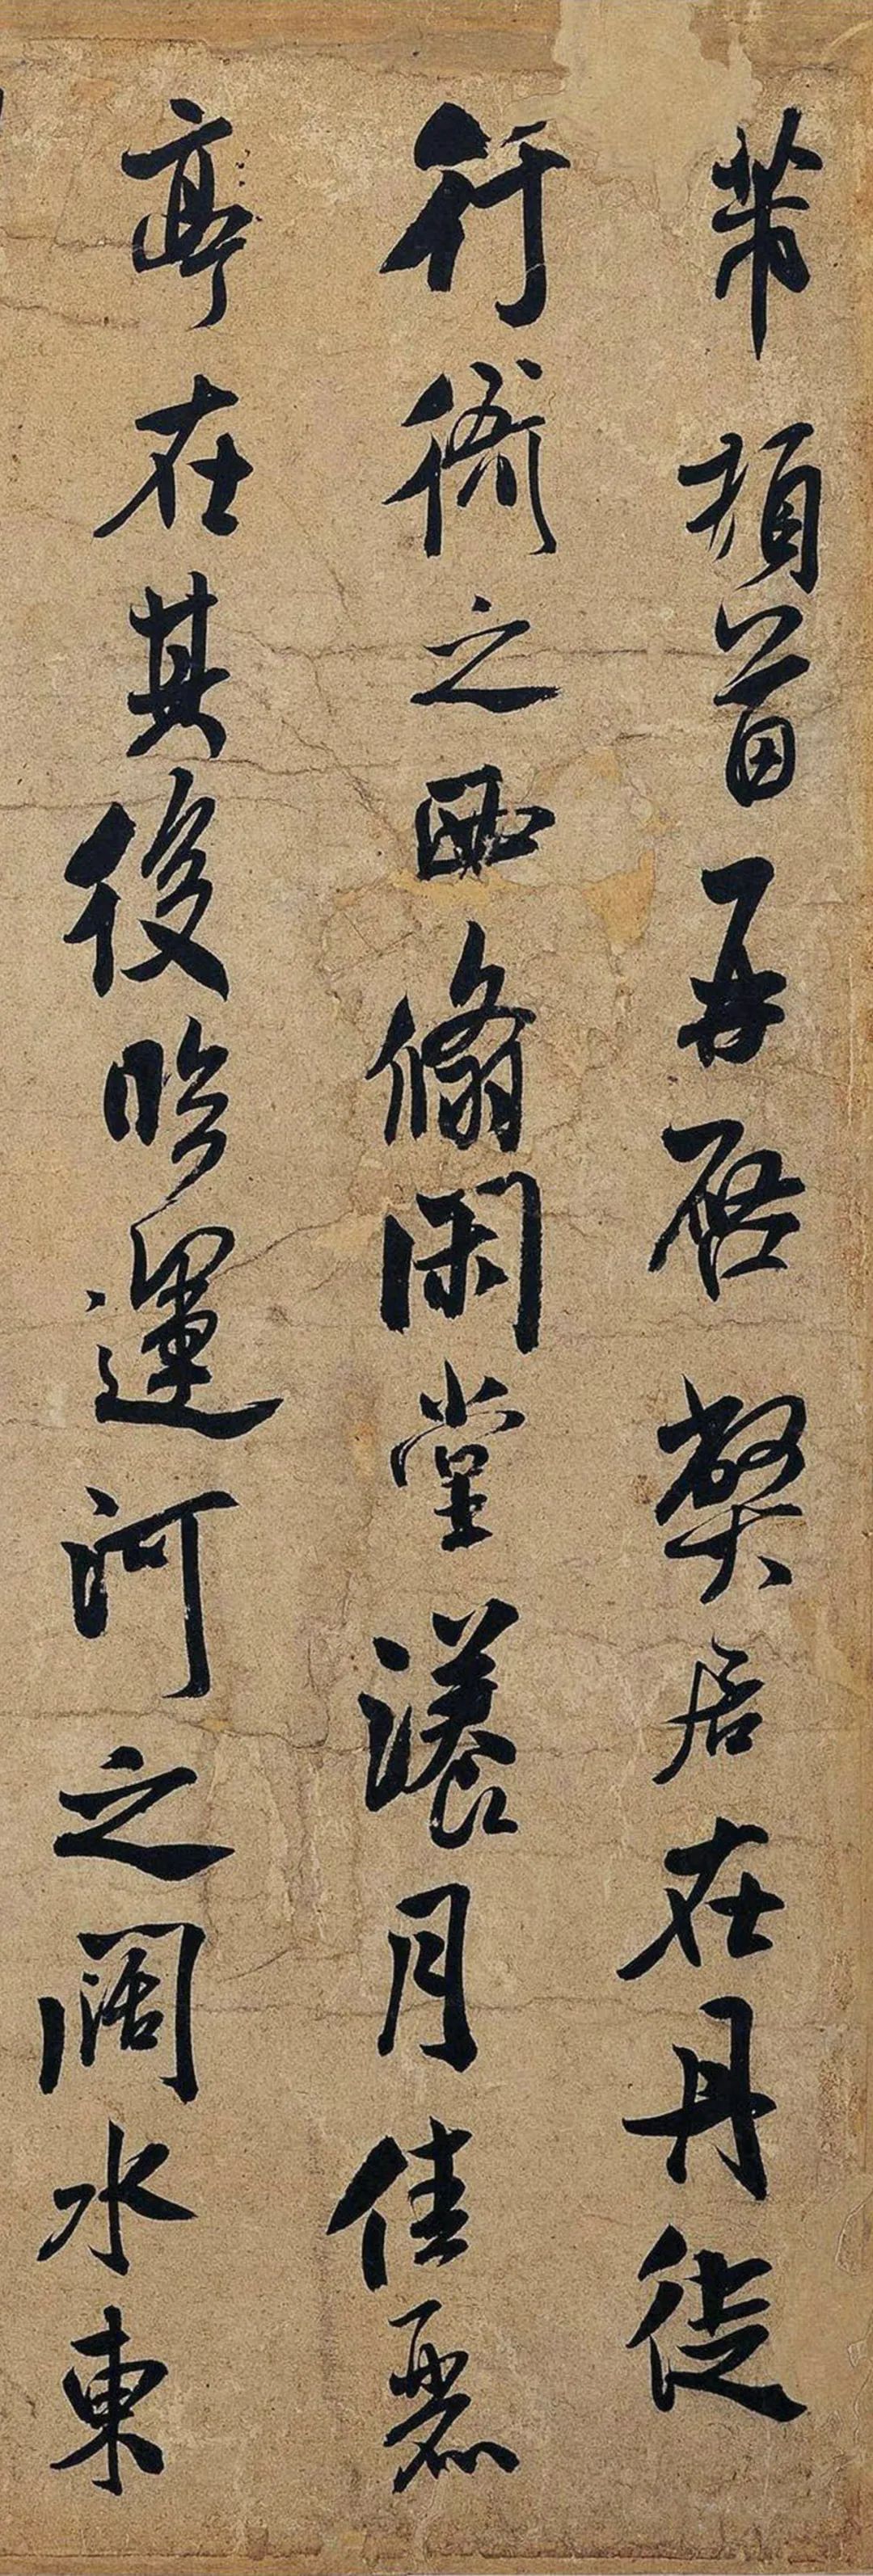 芾頓首再啓獘居在丹徒
行衙之西翛閑堂漾月佳麗
亭在其後臨運河之闊水東